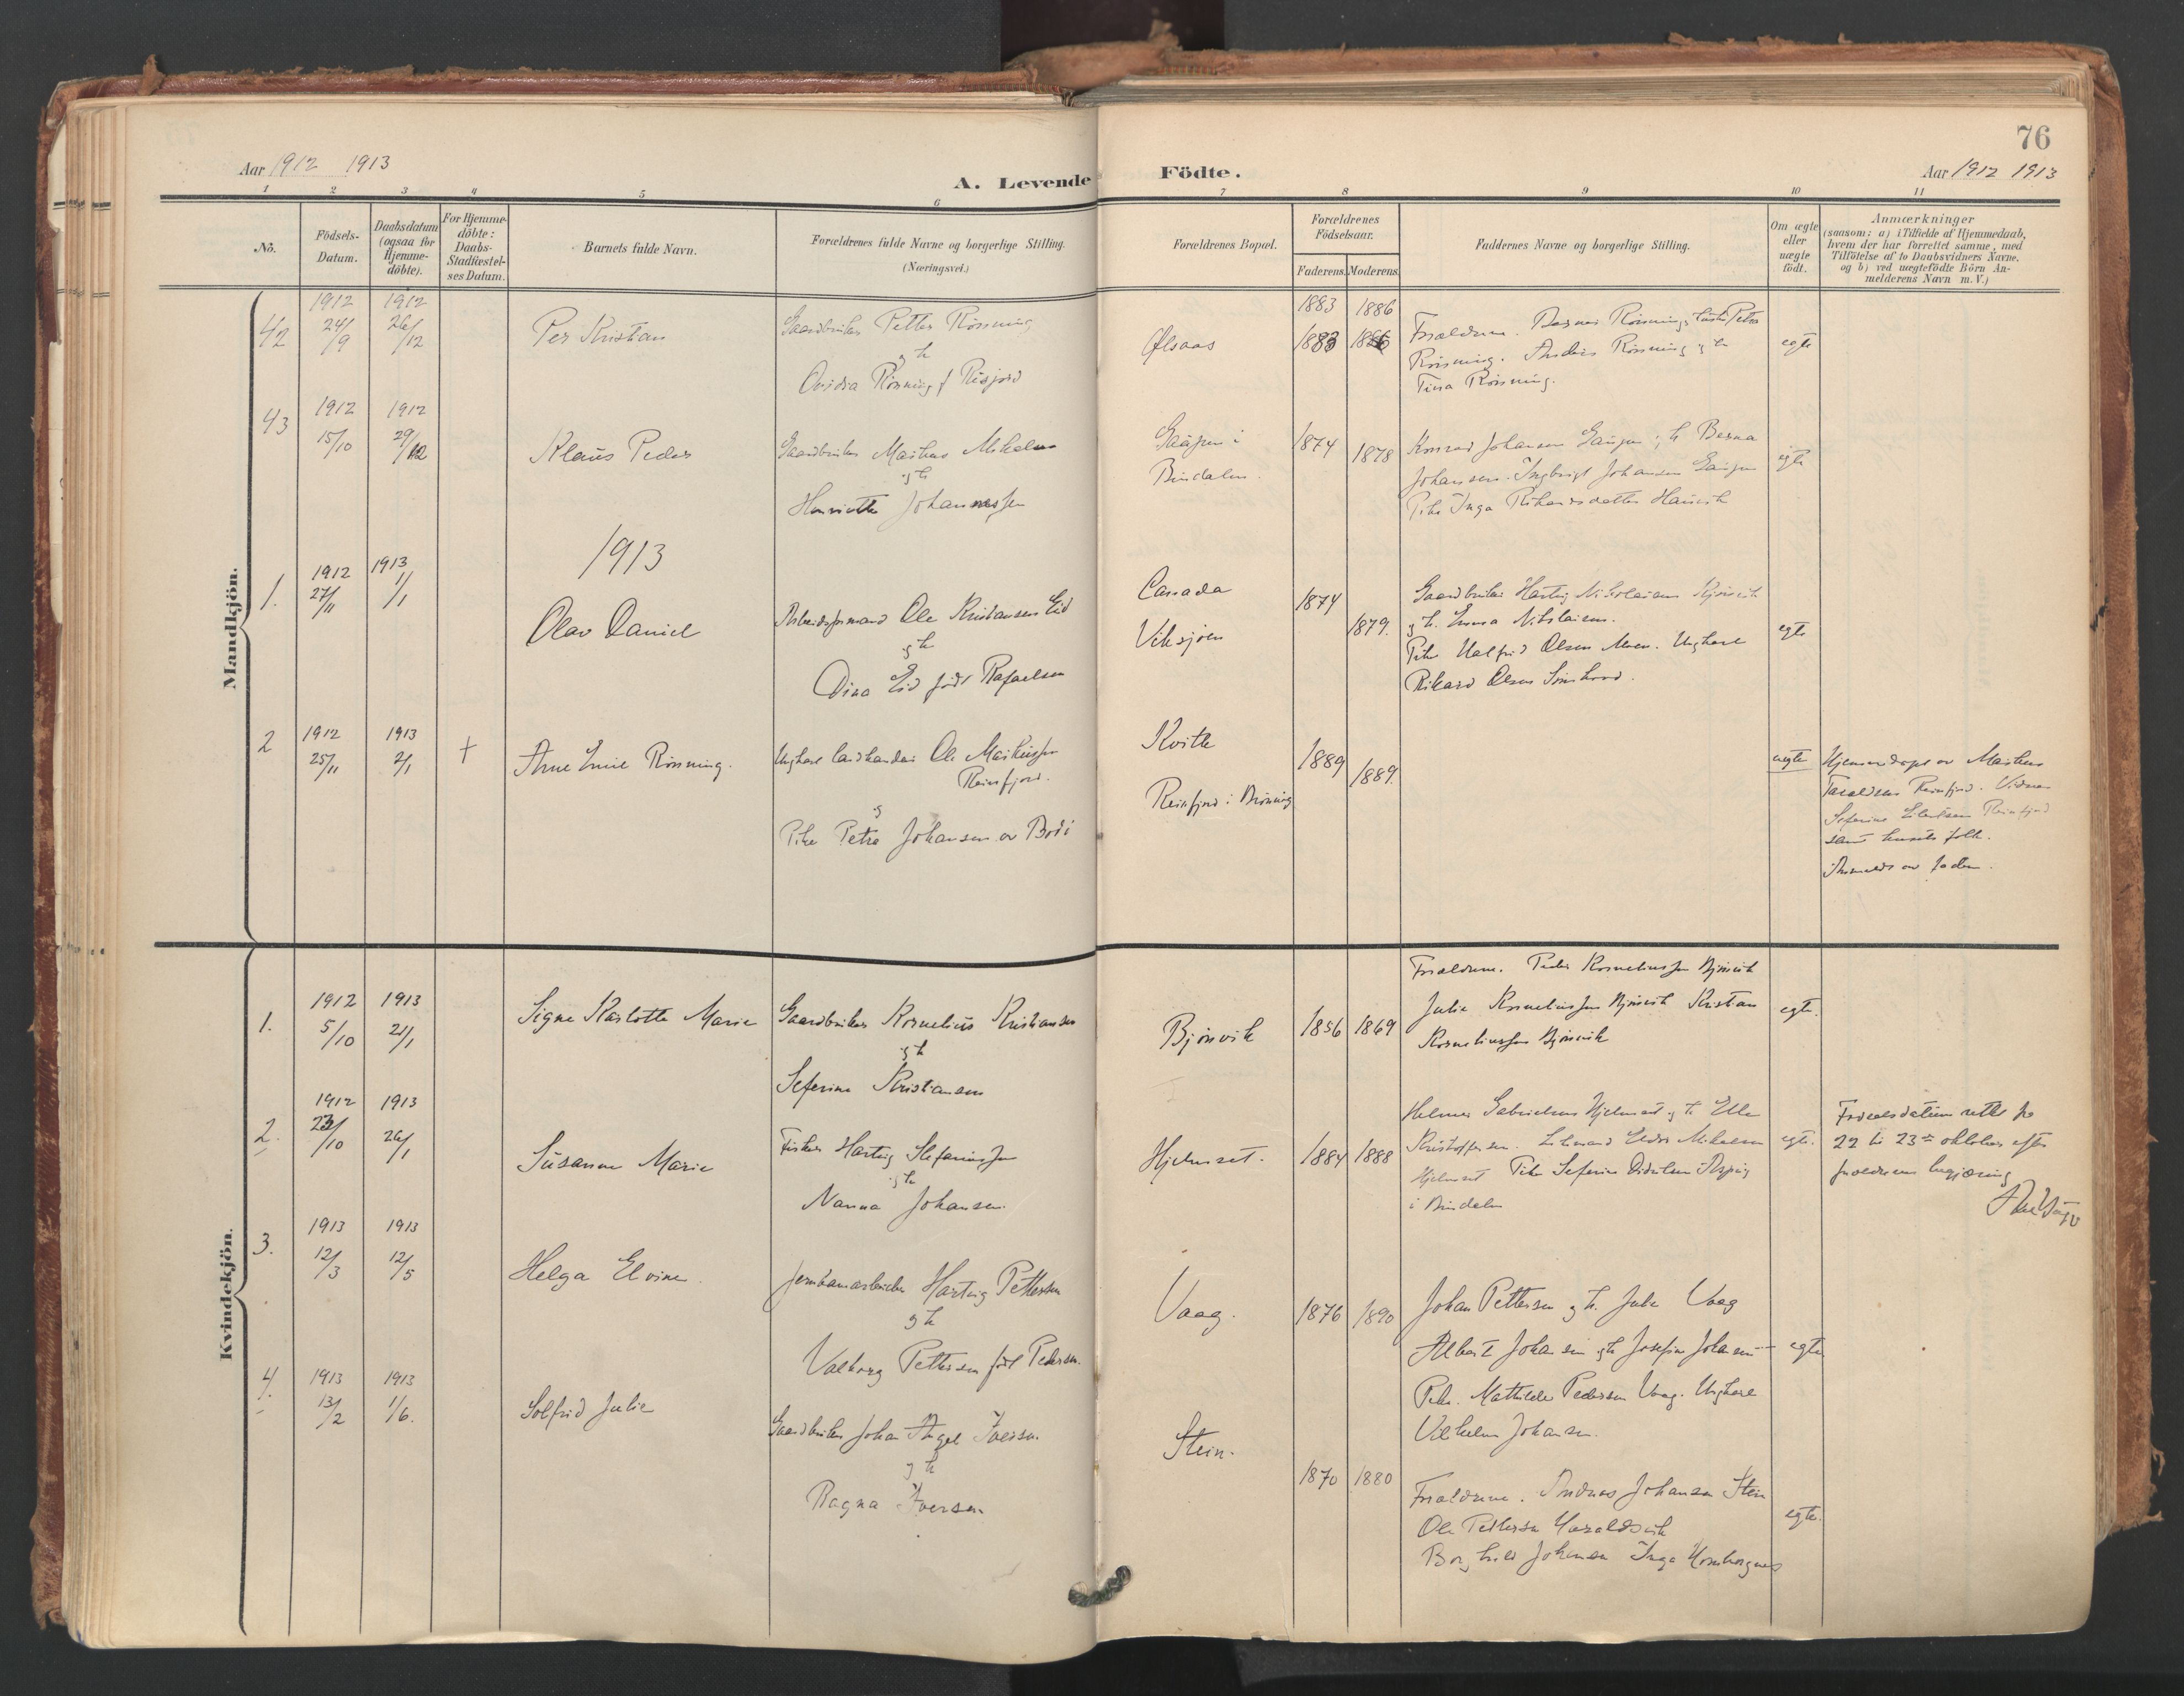 76
Aar 1912 1913
A. Levende Födte.
Aar 1912 1913
1 2 3 4 5 6 7 8 9 10 11
No.
Födsels-Datum.
Daabsdatum (ogsaa for Hjemme-döbte).
For Hjemme-döbte: Daabs-Stadfæstel-ses Datum.
Barnets fulde Navn.
Forældrenes fulde Navne og borgerlige Stilling.
(Næringsvei.)
Forældrenes Bopæl.
Forældrenes Födselsaar.
Faderens. Moderens.
Faddernes Navne og borgerlige Stilling.
Om ægte eller uægte födt.
Anmærkninger
(saasom: a) i Tilfælde af Hjemmedaab,
hvem der har forrettet samme, med
Tilföielse af to Daabsvidners Navne.
og b) ved uægtefödte Börn An-
melderens Navn m. V.)
Mandkjön.
42
1912 24/9
1912 26/12
Per Kristian
Gaardbruker Petter Rönning
g h
Ovidia Rönning f Risjord
Ølsaas
1883 1886
1883 1886
Forældrene.
Rönning. Anders Rönning g h
Tina Rönning.
egte
43
1912 15/10
1912 29/12
Klaus Peder
Gaardbruker Markus Mikalsen
g h
Henriette Johannessen
Bindalen.
1874 1878
Konrad Johansen
Johansen. Ingbrigt Johansen
Pike Inga Rikardsdatter
egte
1913
1.
1912 27/11
1913 1/1
Olav Daniel
Arbeidsformand Ole Kristiansen Eid
g h
Dina Eid född Rafaelsen
Canada
Viksjöen
1874 1879.
Gaardbruker Hartvig Nikolaisen
g h. Emma Nikolaisen.
Pike Halfrid Olsen Moen. Ungkarl
Rikard Olsen
egte
2
1912 25/11
1913 2/1
+
Arne Emil Rönning.
Ungkarl landhandler Ole Markussen
Reinfjord.
g
Pike Petra Johansen av Bodö
Kvitle
Reinfjord i Brönnöy
1889 1889.
uegte
Hjemmedöpt av Markus
Taraldsen Reinfjord. Vidner
Seferine Eilertsen Reinfjord
samt husets folk.
Anmeldt av faderen.
Kvindekjön.
1.
1912 5/10
1913 21/1
Signe Karlotte Marie
Gaardbruker Kornelius Kristiansen
g h
Seferine Kristiansen
Björvik
1856 1869
Forældrene. Peder Korneliussen Björvik
Julie Korneliussen Björvik Kristian
Korneliussen Björvik
egte.
2.
1912 23/10
1913 26/1
Susanne Marie
Fisker Hartvig Stefanussen
g h
Nanna Johansen.
Hjelmset.
1884 1888
Helmer Gabrielsen Hjelmset g h Elle
Kristoffersen. Mikalsen
Hjelmset Pike Seferine Didriksen
i Bindalen
egte.
Födselsdatum rettet fra
22 til 23de oktober efter
forældrenes begjæring
3.
1913 12/3
1913 12/5
Helga Elvine.
Jernbanearbeider Hartvig Pettersen
g h
Valborg Pettersen född Pedersen.
Vaag.
1876 1890
Johan Pettersen g h. Julie Vaag
Albert Johansen g h Josefine Johansen
Pike. Mathilde Pedersen Vaag. Ungkarl
Vilhelm Johansen.
egte
4.
1913 13/2
1913 1/6.
Solfrid Julie
Gaardbruker Johan Angel Iversen.
g h
Ragna Iversen
Stein.
1870 1880
Forældrene. Andreas Johansen Stein
Ole Pettersen Haraldsvik
Borghild Johansen Inga Hornborgnes
egte.